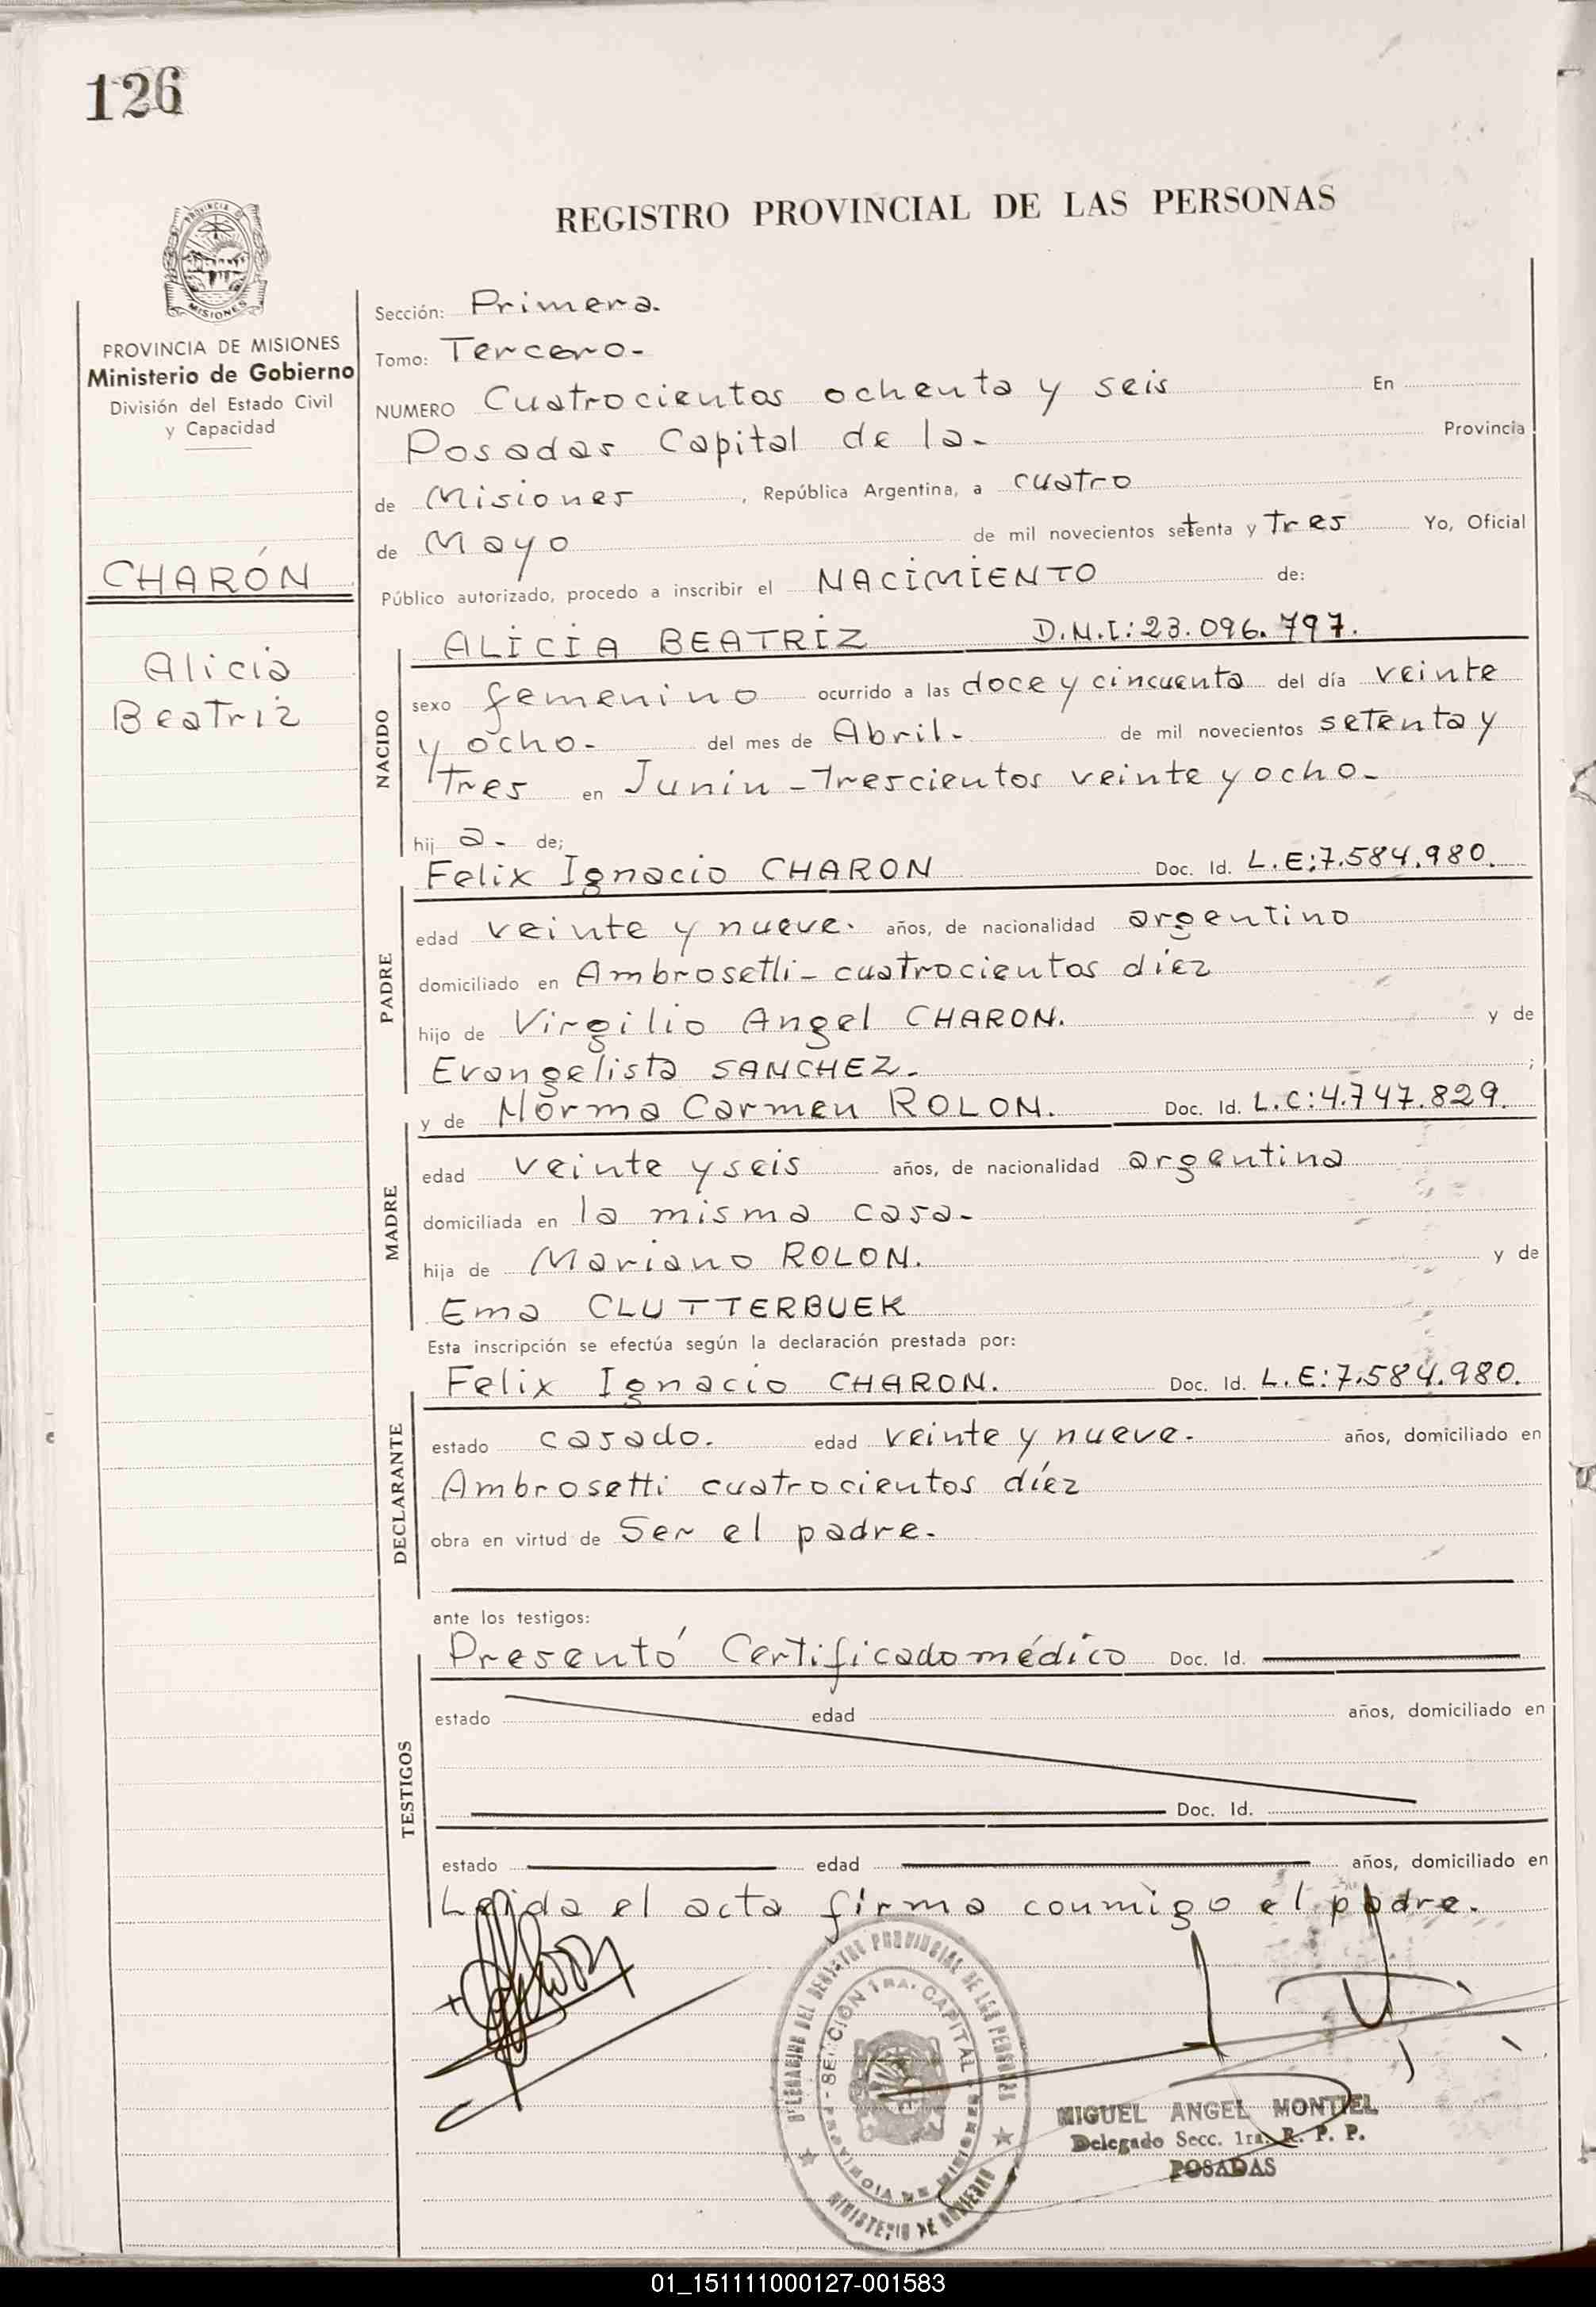 126
REGISTRO PROVINCIAL DE LAS PERSONAS
PROVINCIA DE
MISIONES
PROVINCIA DE MISIONES
Ministerio de Gobierno
División del Estado Civil
y Capacidad
CHARÓN
Alicia
Beatriz
Sección: Primera.
Tomo: Tercero-
NUMERO Cuatrocientos ochenta y seis En
Posadas Capital de la- Provincia
de Misiones, República Argentina, a cuatro
de Mayo de mil novecientos setenta y Tres Yo, Oficial
Público autorizado, procedo a inscribir el NACIMIENTO de:
NACIDO
ALICIA BEATRIZ D.N.I: 23.096.797.
sexo femenino ocurrido a las doce y cincuenta del día veinte
y ocho- del mes de Abril- de mil novecientos setenta y
Tres en Junin - Trescientos veinte y ocho-
hij a- de;
PADRE
Felix Ignacio CHARON Doc. Id. L.E:7.584.980.
edad veinte y nueve. años, de nacionalidad argentino
domiciliado en Ambrosetti- cuatrocientos díez
hijo de Virgilio Angel CHARON. y de
Evangelista SANCHEZ- ;
MADRE
y de Norma Carmen ROLON. Doc. Id. L.C:4.747.829.
edad veinte y seis años, de nacionalidad argentina
domiciliada en la misma casa-
hija de Mariano ROLON. y de
Ema CLUTTERBUEK
Esta inscripción se efectúa según la declaración prestada por:
DECLARANTE
Felix Ignacio CHARON. Doc. Id. L.E:7.584.980.
estado casado. edad veinte y nueve- años, domiciliado en
Ambrosetti cuatrocientos díez
obra en virtud de Ser el padre-
ante los testigos:
TESTIGOS
Presentó Certificado médico Doc. Id.
estado edad años, domiciliado en
Doc. Id.
estado edad años, domiciliado en
Leída el acta firma conmigo el padre.
DELEGACION DEL REGISTRO PROVINCIAL DE LAS PERSONAS
SECCION 1RA. CAPITAL
PROVINCIA DE MISIONES
MINISTERIO DE GOBIERNO
MIGUEL ANGEL MONTIEL
Delegado Secc. 1ra. R. P. P.
POSADAS
01_151111000127-001583